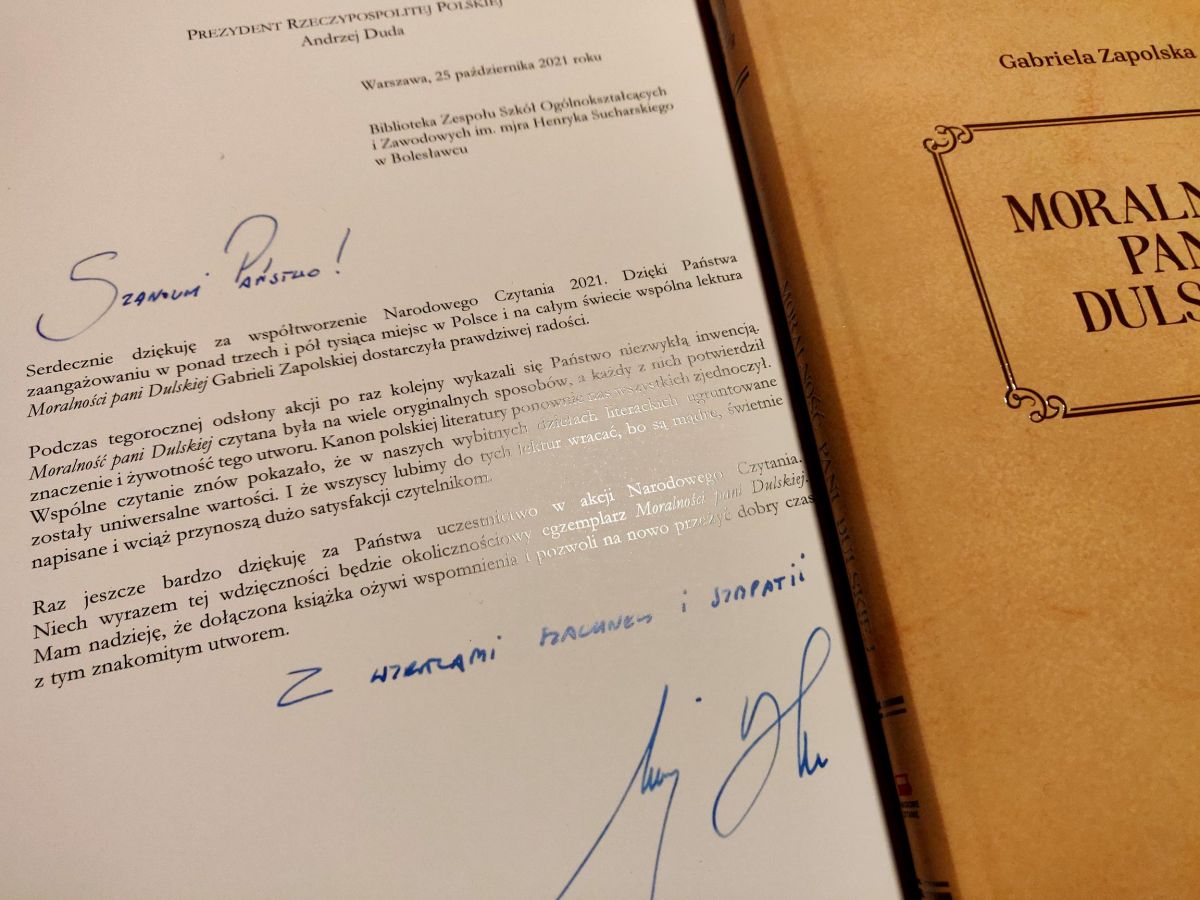 PREZYDENT RZECZYPOSPOLITEJ POLSKIEJ
Andrzej Duda
Warszawa, 25 października 2021 roku
Biblioteka Zespołu Szkół Ogólnokształcących
i Zawodowych im. mjra Henryka Sucharskiego
w Bolesławcu
Szanowni Państwo!
Serdecznie dziękuję za współtworzenie Narodowego Czytania 2021. Dzięki Państwa
zaangażowaniu w ponad trzech i pół tysiąca miejsc w Polsce i na całym świecie wspólna lektura
Moralności pani Dulskiej Gabrieli Zapolskiej dostarczyła prawdziwej radości.
Podczas tegorocznej odsłony akcji po raz kolejny wykazali się Państwo niezwykłą inwencją.
Moralność pani Dulskiej czytana była na wiele oryginalnych sposobów, a każdy z nich potwierdził
znaczenie i żywotność tego utworu. Kanon polskiej literatury ponownie nas wszystkich zjednoczył.
Wspólne czytanie znów pokazało, że w naszych wybitnych dziełach literackich ugruntowane
zostały uniwersalne wartości. I że wszyscy lubimy do tych lektur wracać, bo są mądre, świetnie
napisane i wciąż przynoszą dużo satysfakcji czytelnikom.
Raz jeszcze bardzo dziękuję za Państwa uczestnictwo w akcji Narodowego Czytania.
Niech wyrazem tej wdzięczności będzie okolicznościowy egzemplarz Moralności pani Dulskiej.
Mam nadzieję, że dołączona książka ożywi wspomnienia i pozwoli na nowo przeżyć dobry czas
z tym znakomitym utworem.
Z wyrazami szacunku i sympatii
MORALNOŚĆ PANI DULSKIEJ
Gabriela Zapolska
MORALN
PAN
DULS